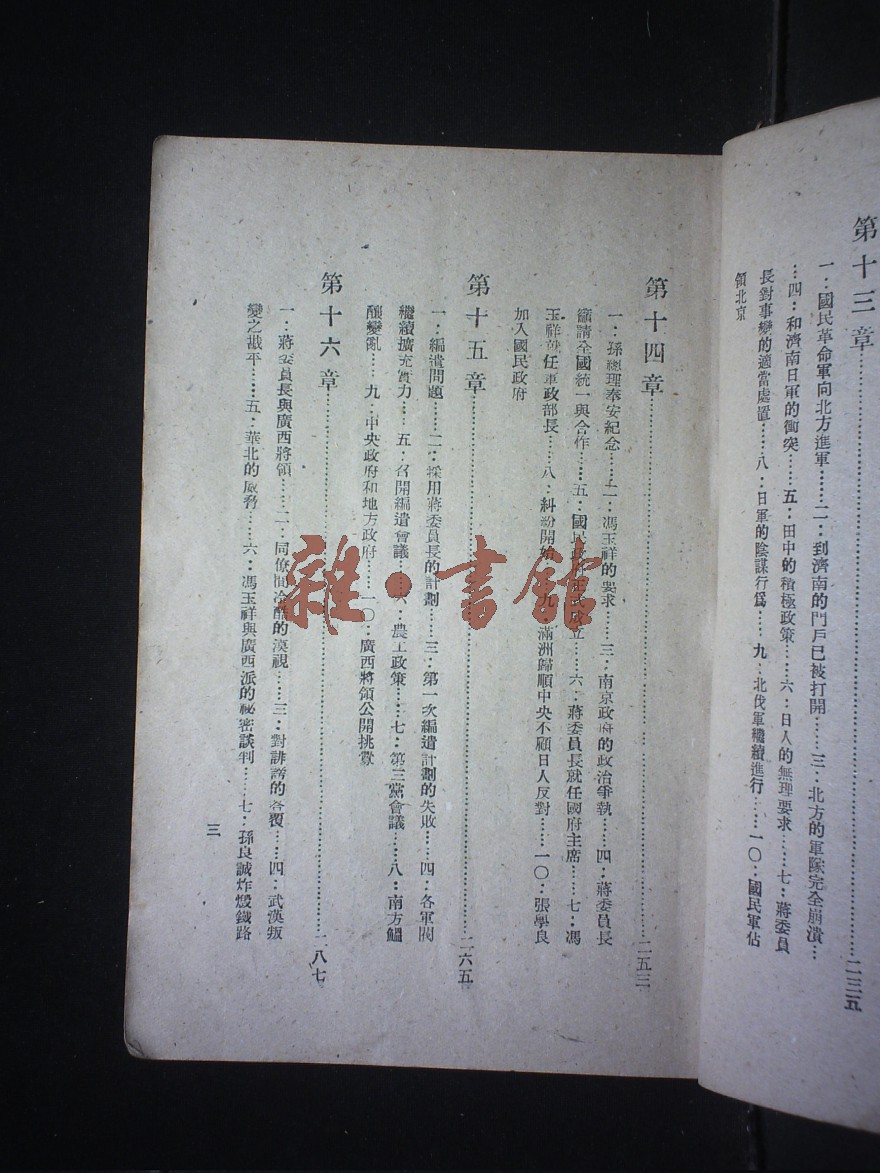 第十三章……二三五
一：國民革命軍向北方進軍……二：到濟南的門戶已被打開……三：北方的軍隊完全崩潰…
…四：和濟南日軍的衝突……五：田中的積極政策……六：日人的無理要求……七：蔣委員
長對事變的適當處置……八：日軍的陰謀行爲……九：北伐軍繼續進行……一〇：國民軍佔
領北京
第十四章……二五三
一：孫總理奉安紀念……二：馮玉祥的要求……三：南京政府的政治爭執……四：蔣委員長
籲請全國統一與合作……五：國民政府正式成立……六：蔣委員長就任國府主席……七：馮
玉祥就任軍政部長……八：糾紛開始……九：滿洲歸順中央不顧日人反對……一〇：張學良
加入國民政府
第十五章……二六五
一：編遣問題……二：採用蔣委員長的計劃……三：第一次編遣計劃的失敗……四：各軍閥
繼續擴充實力……五：召開編遣會議……六：農工政策……七：第三黨會議……八：南方醞
釀變亂……九：中央政府和地方政府……一〇：廣西將領公開挑釁
第十六章……二八七
一：蔣委員長與廣西將領……二：同僚間冷酷的漠視……三：對誹謗的答覆……四：武漢叛
變之戡平……五：華北的威脅……六：馮玉祥與廣西派的祕密談判……七：孫良誠炸燬鐵路
三
雜·書館